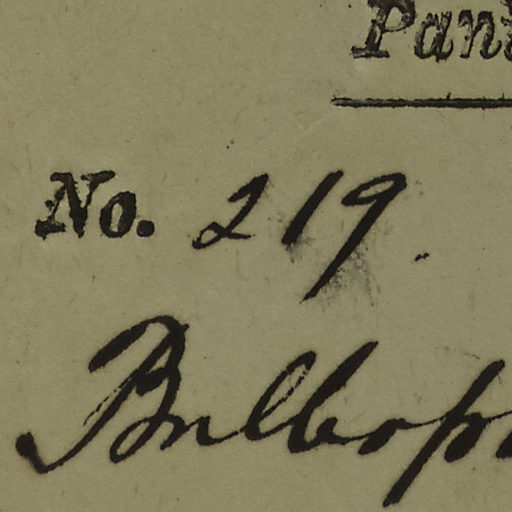 Pan
No. 219.
Bulbop